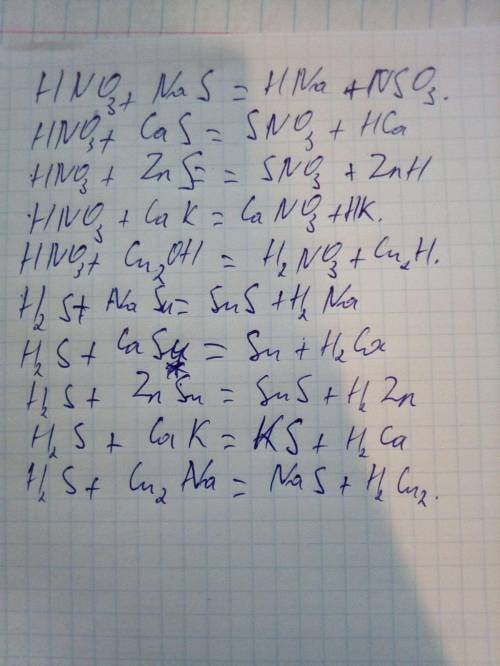 HNO3 + NaS = HNa + NSO3.
HNO3 + CaS = SNO3 + HCa
HNO3 + ZnS = = SNO3 + ZnH
HNO3 + CaK = CaNO3 + HK.
HNO3 + Cu2OH = H2NO3 + Cu2H.
H2S + NaSn = SnS + H2Na
H2S + CaSn = Sn + H2Ca
H2S + ZnSn = SnS + H2Zn
H2S + CaK = KS + H2Ca
H2S + Cu2Na = NaS + H2Cu2.